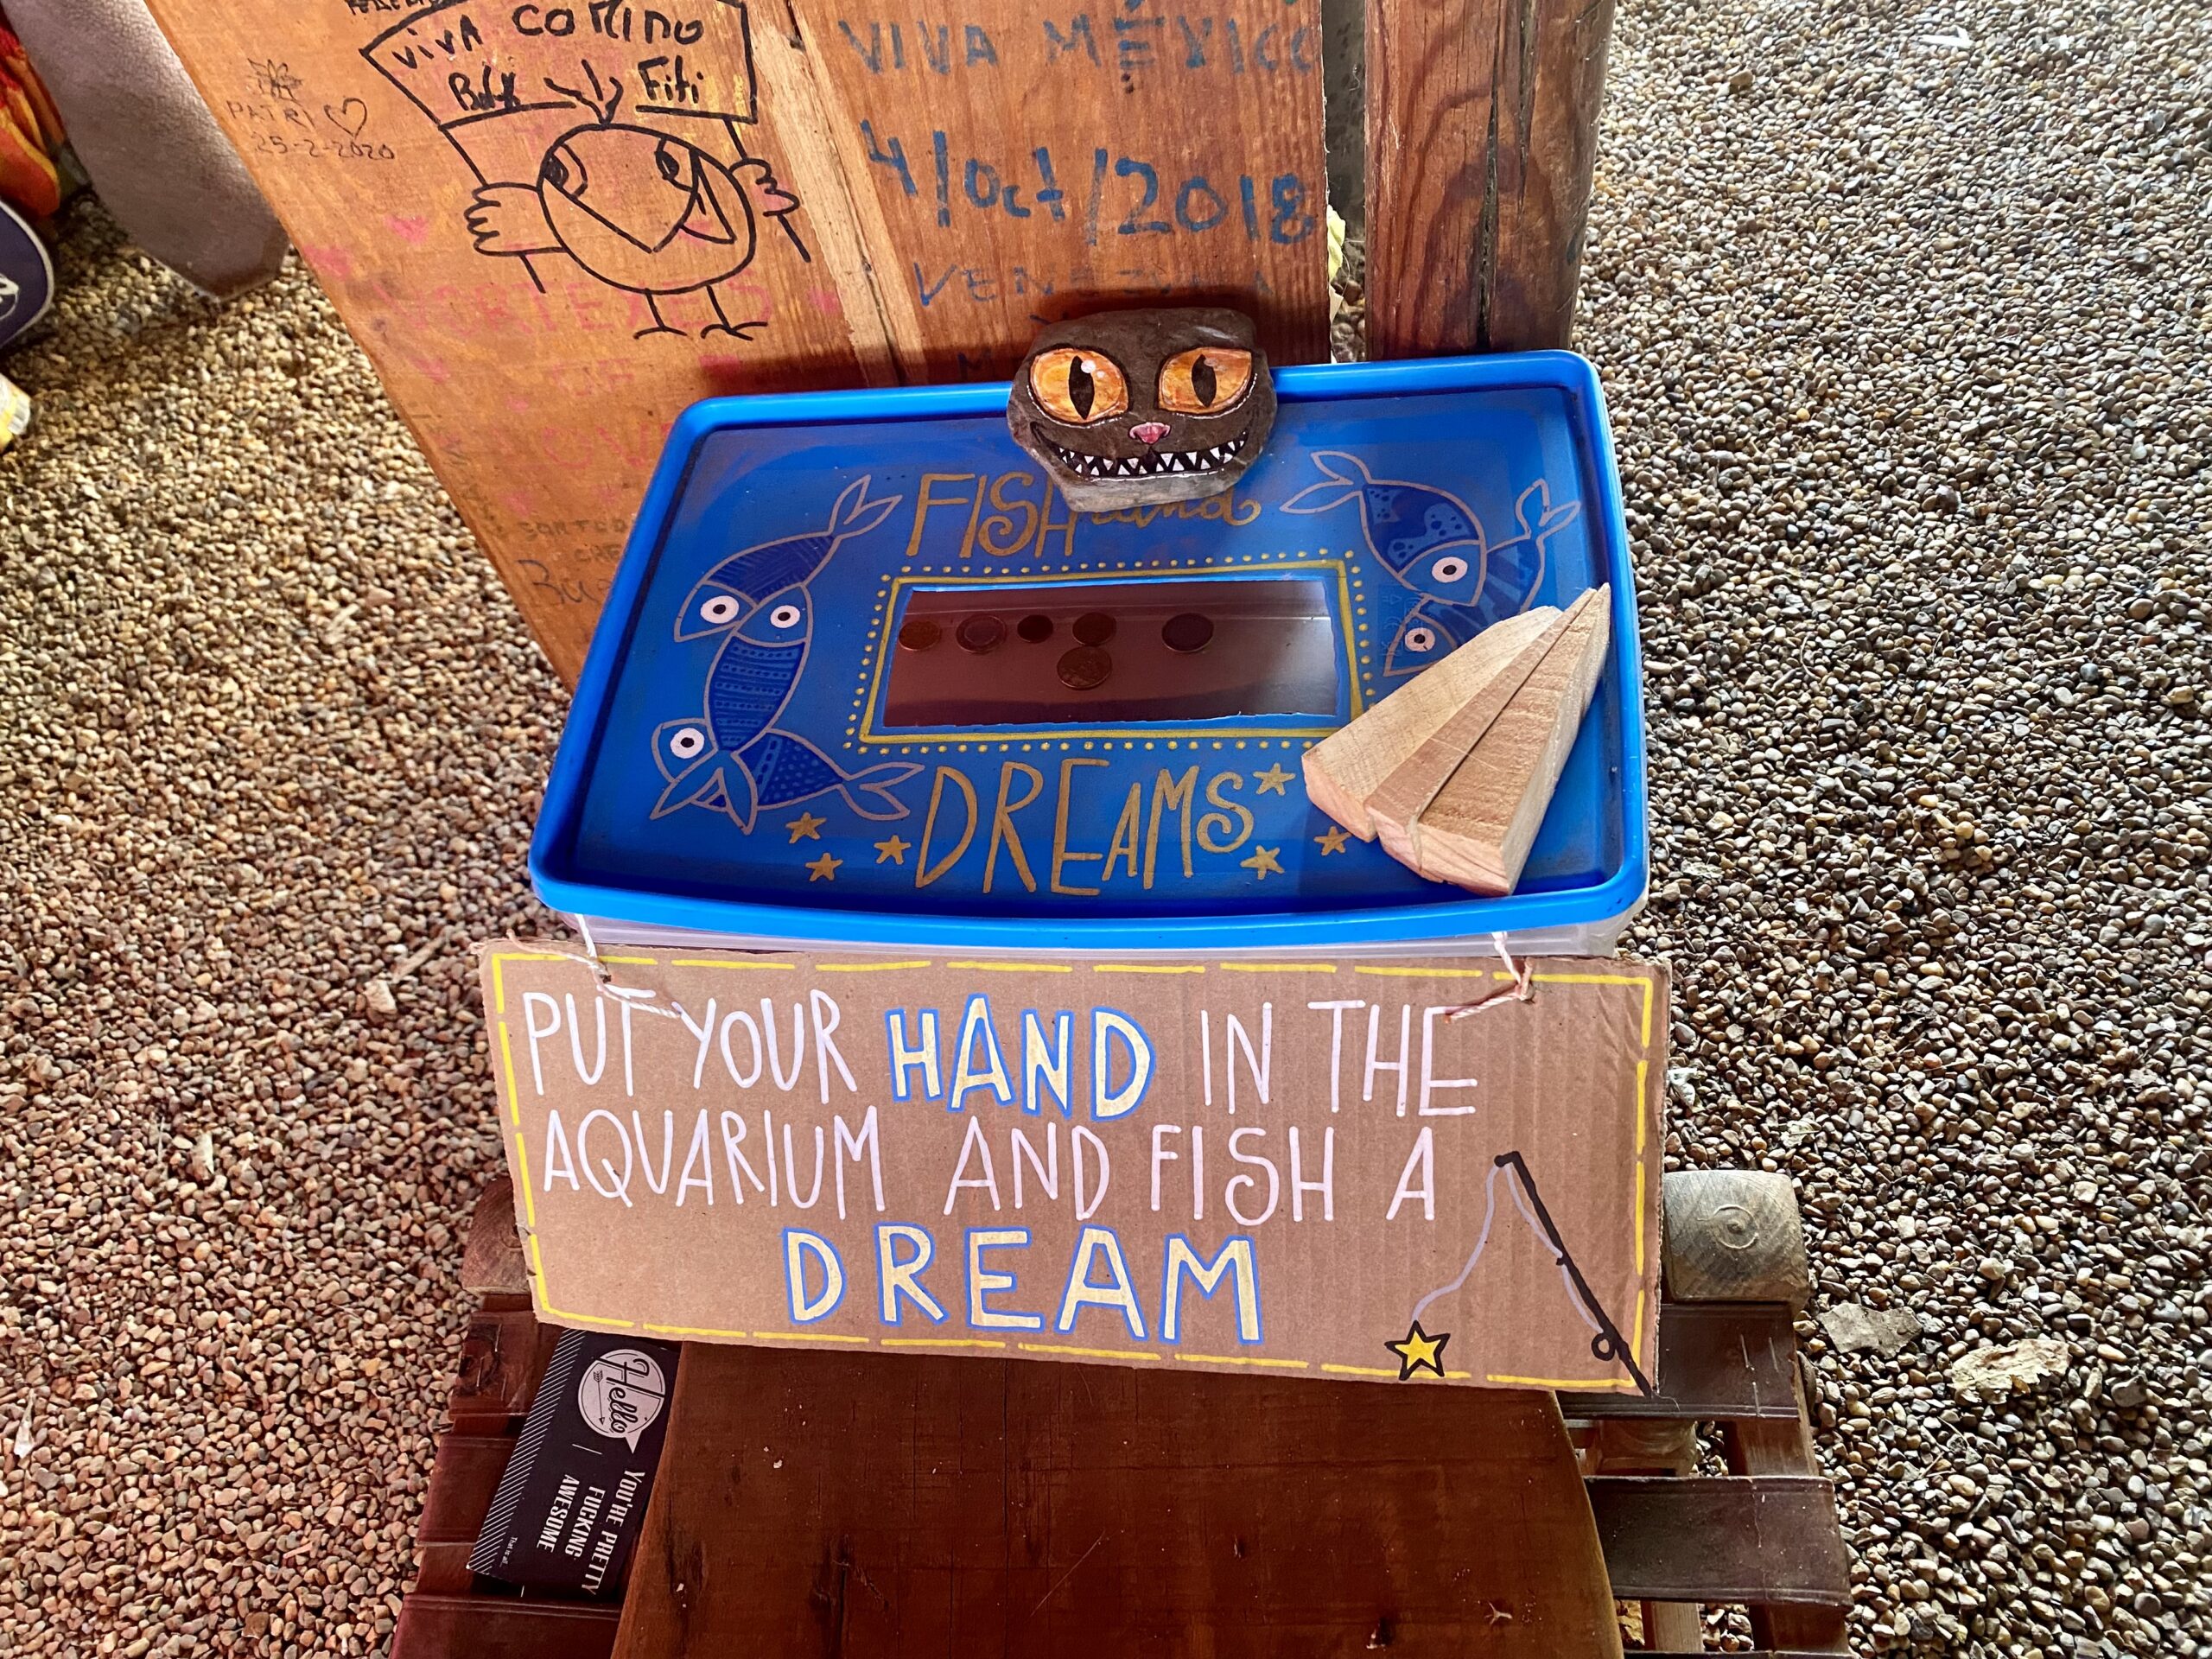 VIVA COMINO
Fifi
PATRI
25-2-2020
VIVA MÉXICO
4/Oct/2018
VORTEXED
OF
FISH and
DREAMS
PUT YOUR HAND IN THE
AQUARIUM AND FISH A
DREAM
Hello
YOU'RE PRETTY
FUCKING
AWESOME
That is all.